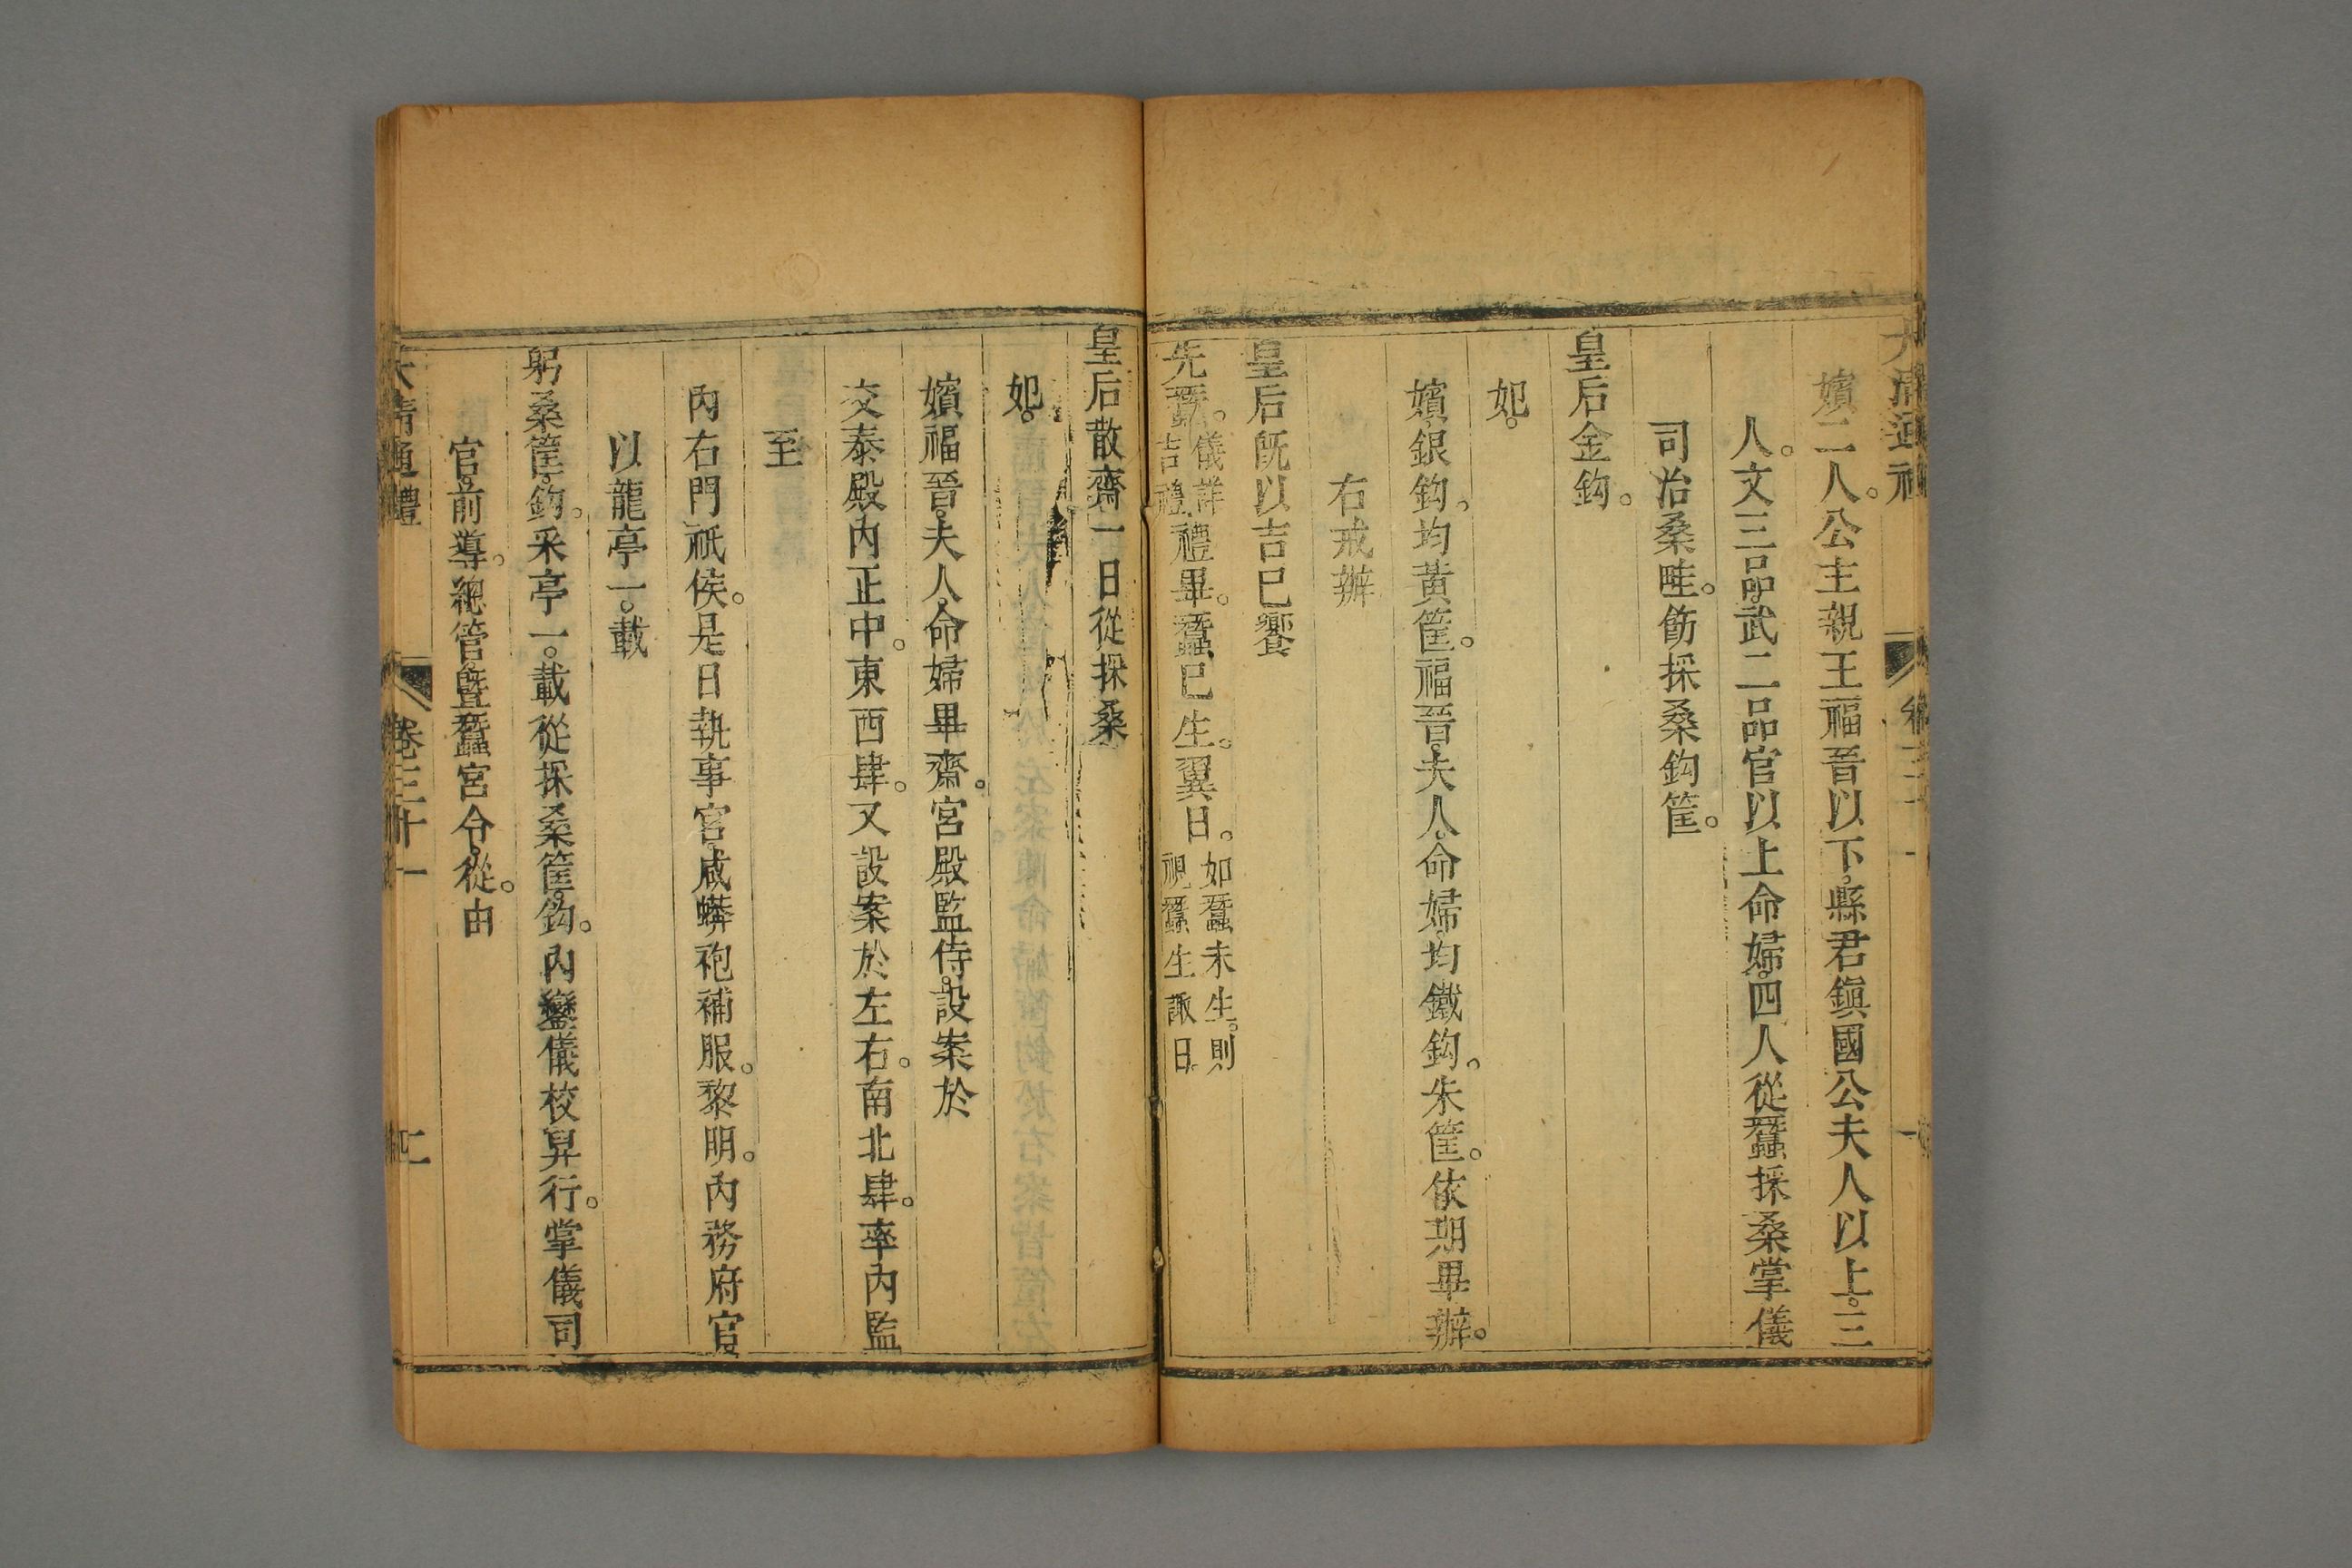 大清通禮 卷三十一 一
嬪二人。公主親王福晉以下。縣君鎭國公夫人以上。三
人。文三品。武二品官以上命婦。四人從蠶採桑掌儀
司治桑畦。飭採桑鈎筐。
皇后金鈎。
妃。
嬪。銀鈎。均黃筐。福晉。夫人。命婦。均鐵鈎。朱筐。依期畢辦。
右戒辦
皇后旣以吉巳饗
先蠶。儀詳吉禮。禮畢。蠶巳生。翼日。如蠶未生。則視蠶生諏日。
皇后散齋一日從採桑
妃。
嬪福晉。夫人。命婦畢齋。宮殿監侍。設案於
交泰殿內正中。東西肆。又設案於左右。南北肆。率內監
至
內右門祇俟。是日執事官。咸蟒袍補服。黎明。內務府官
以龍亭一。載
躬桑筐。鈎。采亭一。載從採桑筐。鈎。內鑾儀校舁行。掌儀司
官。前導。總管。曁蠶宮令。從。由
大清通禮 卷三十一 二